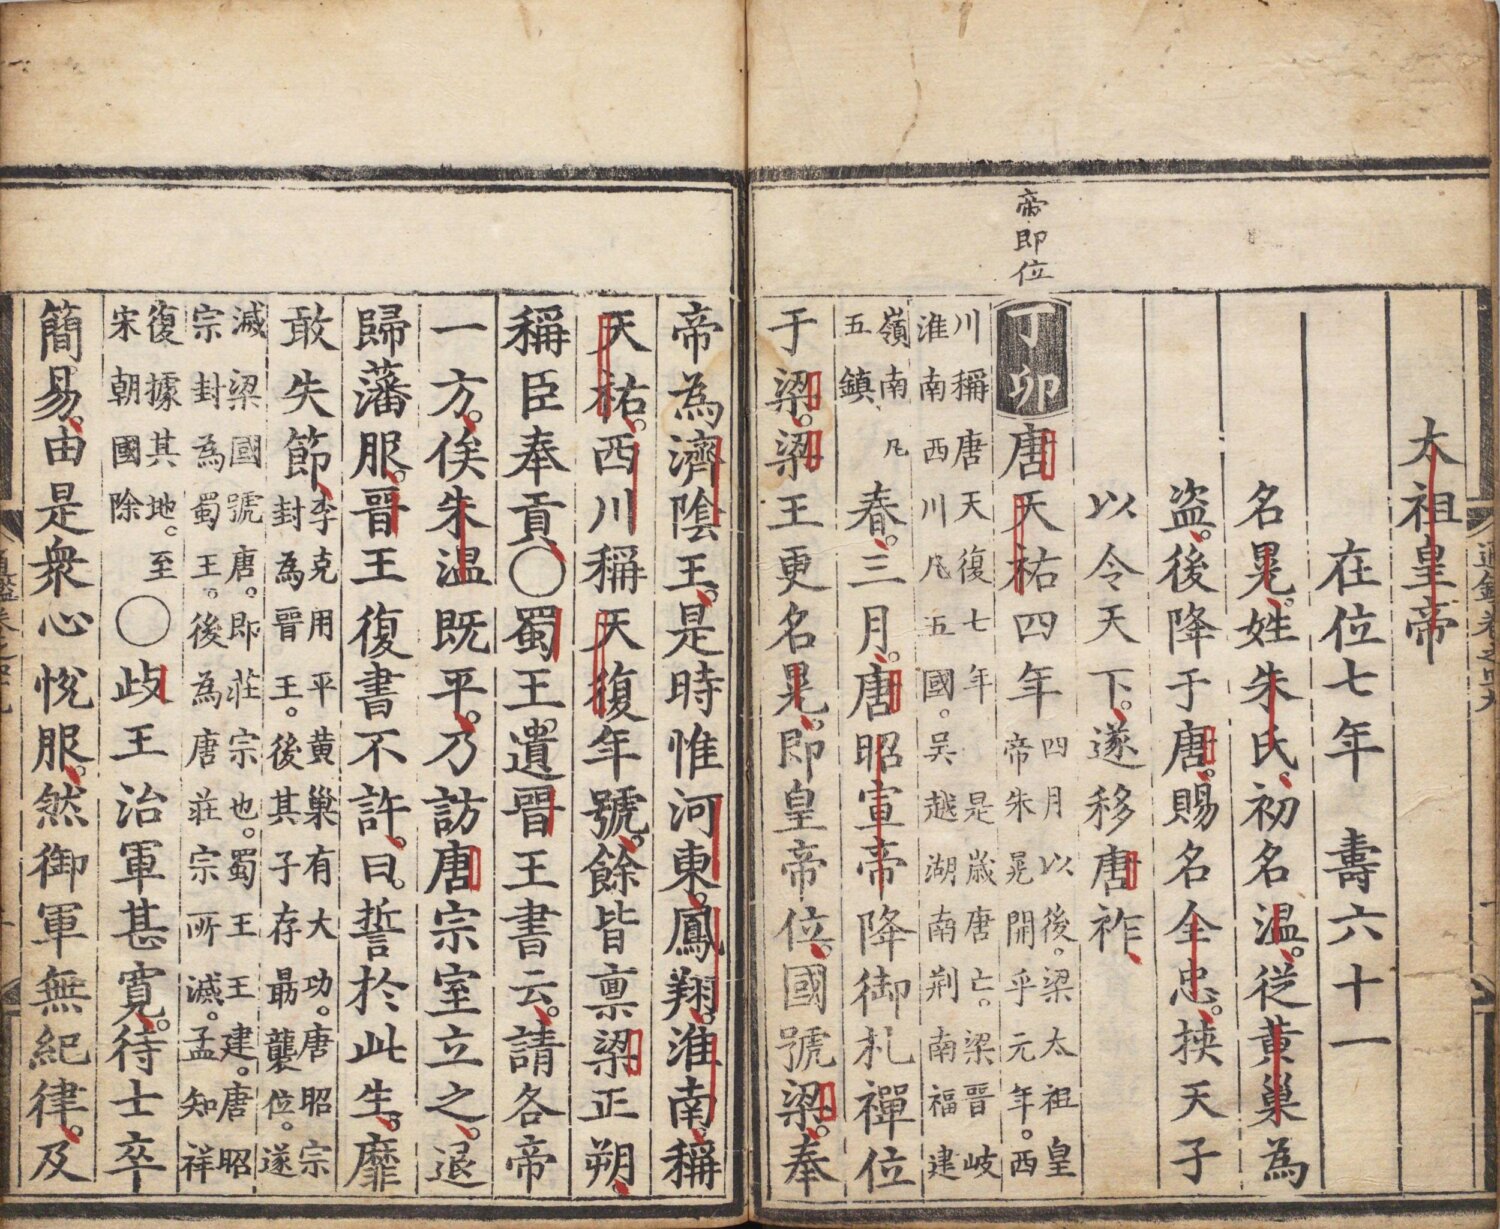 太祖皇帝
在位七年　壽六十一
名晃。姓朱氏。初名温。從黄巢為
盜。後降于唐。賜名全忠。挾天子
以令天下。遂移唐祚
帝即位
丁卯唐天祐四年四月以後。梁太祖皇
帝朱晃開乎元年。西
川稱唐天復七年是歲唐亡。梁晉岐
淮南西川凡五國。吳越湖南荆南福建
嶺南凡
五鎮
春。三月。唐昭宣帝降御札禪位
于梁。梁王更名晃。即皇帝位。國號梁。奉
帝為濟陰王。是時惟河東。鳳翔。淮南稱
天祐西川稱天復年號。餘皆禀梁正朔
稱臣奉貢〇蜀王遺晉王書云。請各帝
一方。俟朱温既平。乃訪唐宗室立之。退
歸藩服。晉王復書不許。曰。誓於此生。靡
敢失節李克用平黄巢有大功。唐昭宗
封為晉王。後其子存勗襲位。遂
滅梁國號唐。即莊宗也。蜀王王建。唐昭
宗封為蜀王。後為唐莊宗所滅。孟知祥
復據其地。至
宋朝國除
〇歧王治軍甚寬。待士卒
簡易。由是衆心悅服。然御軍無紀律。及